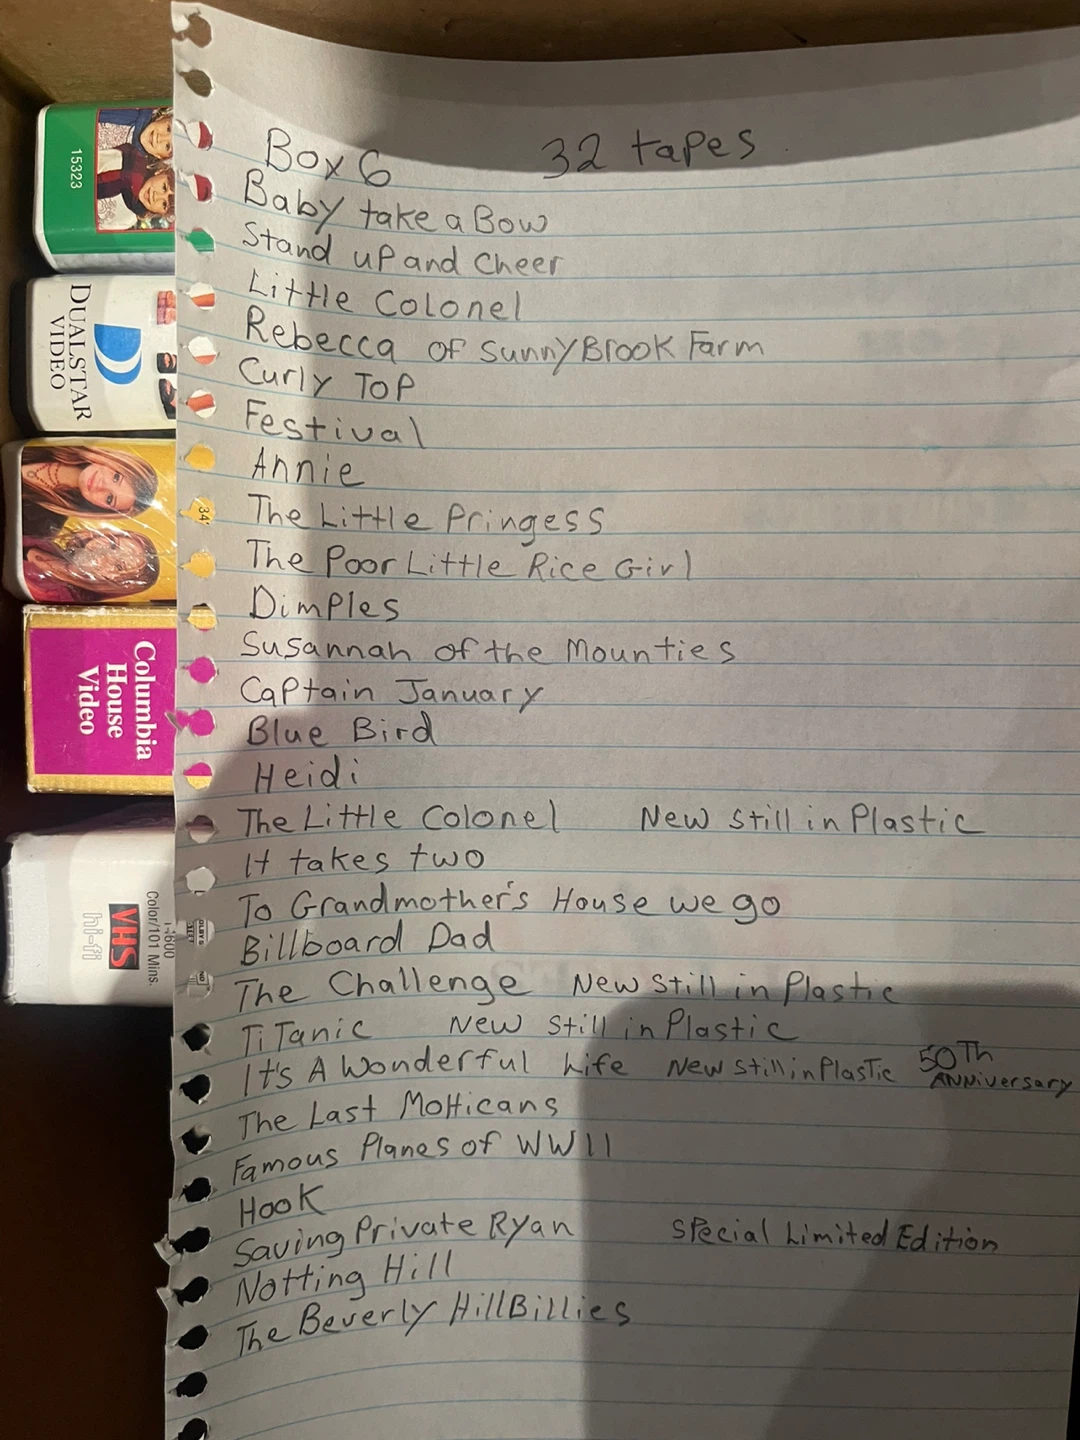 Box 6 32 tapes
Baby take a Bow
Stand up and Cheer
Little Colonel
Rebecca of SunnyBrook Farm
Curly Top
Festival
Annie
The Little Pringess
The Poor Little Rice Girl
Dimples
Susannah of the Mounties
Captain January
Blue Bird
Heidi
The Little Colonel New Still in Plastic
It takes two
To Grandmother's House we go
Billboard Dad
The Challenge New Still in Plastic
TiTanic New Still in Plastic
It's A Wonderful Life New Still in Plastic 50Th ANNiversary
The Last Mohicans
Famous Planes of WW11
Hook
Saving Private Ryan Special Limited Edition
Notting Hill
The Beverly HillBillies
15323
DUALSTAR
VIDEO
34
Columbia
House
Video
Color/101 Mins.
VHS
hi-fi